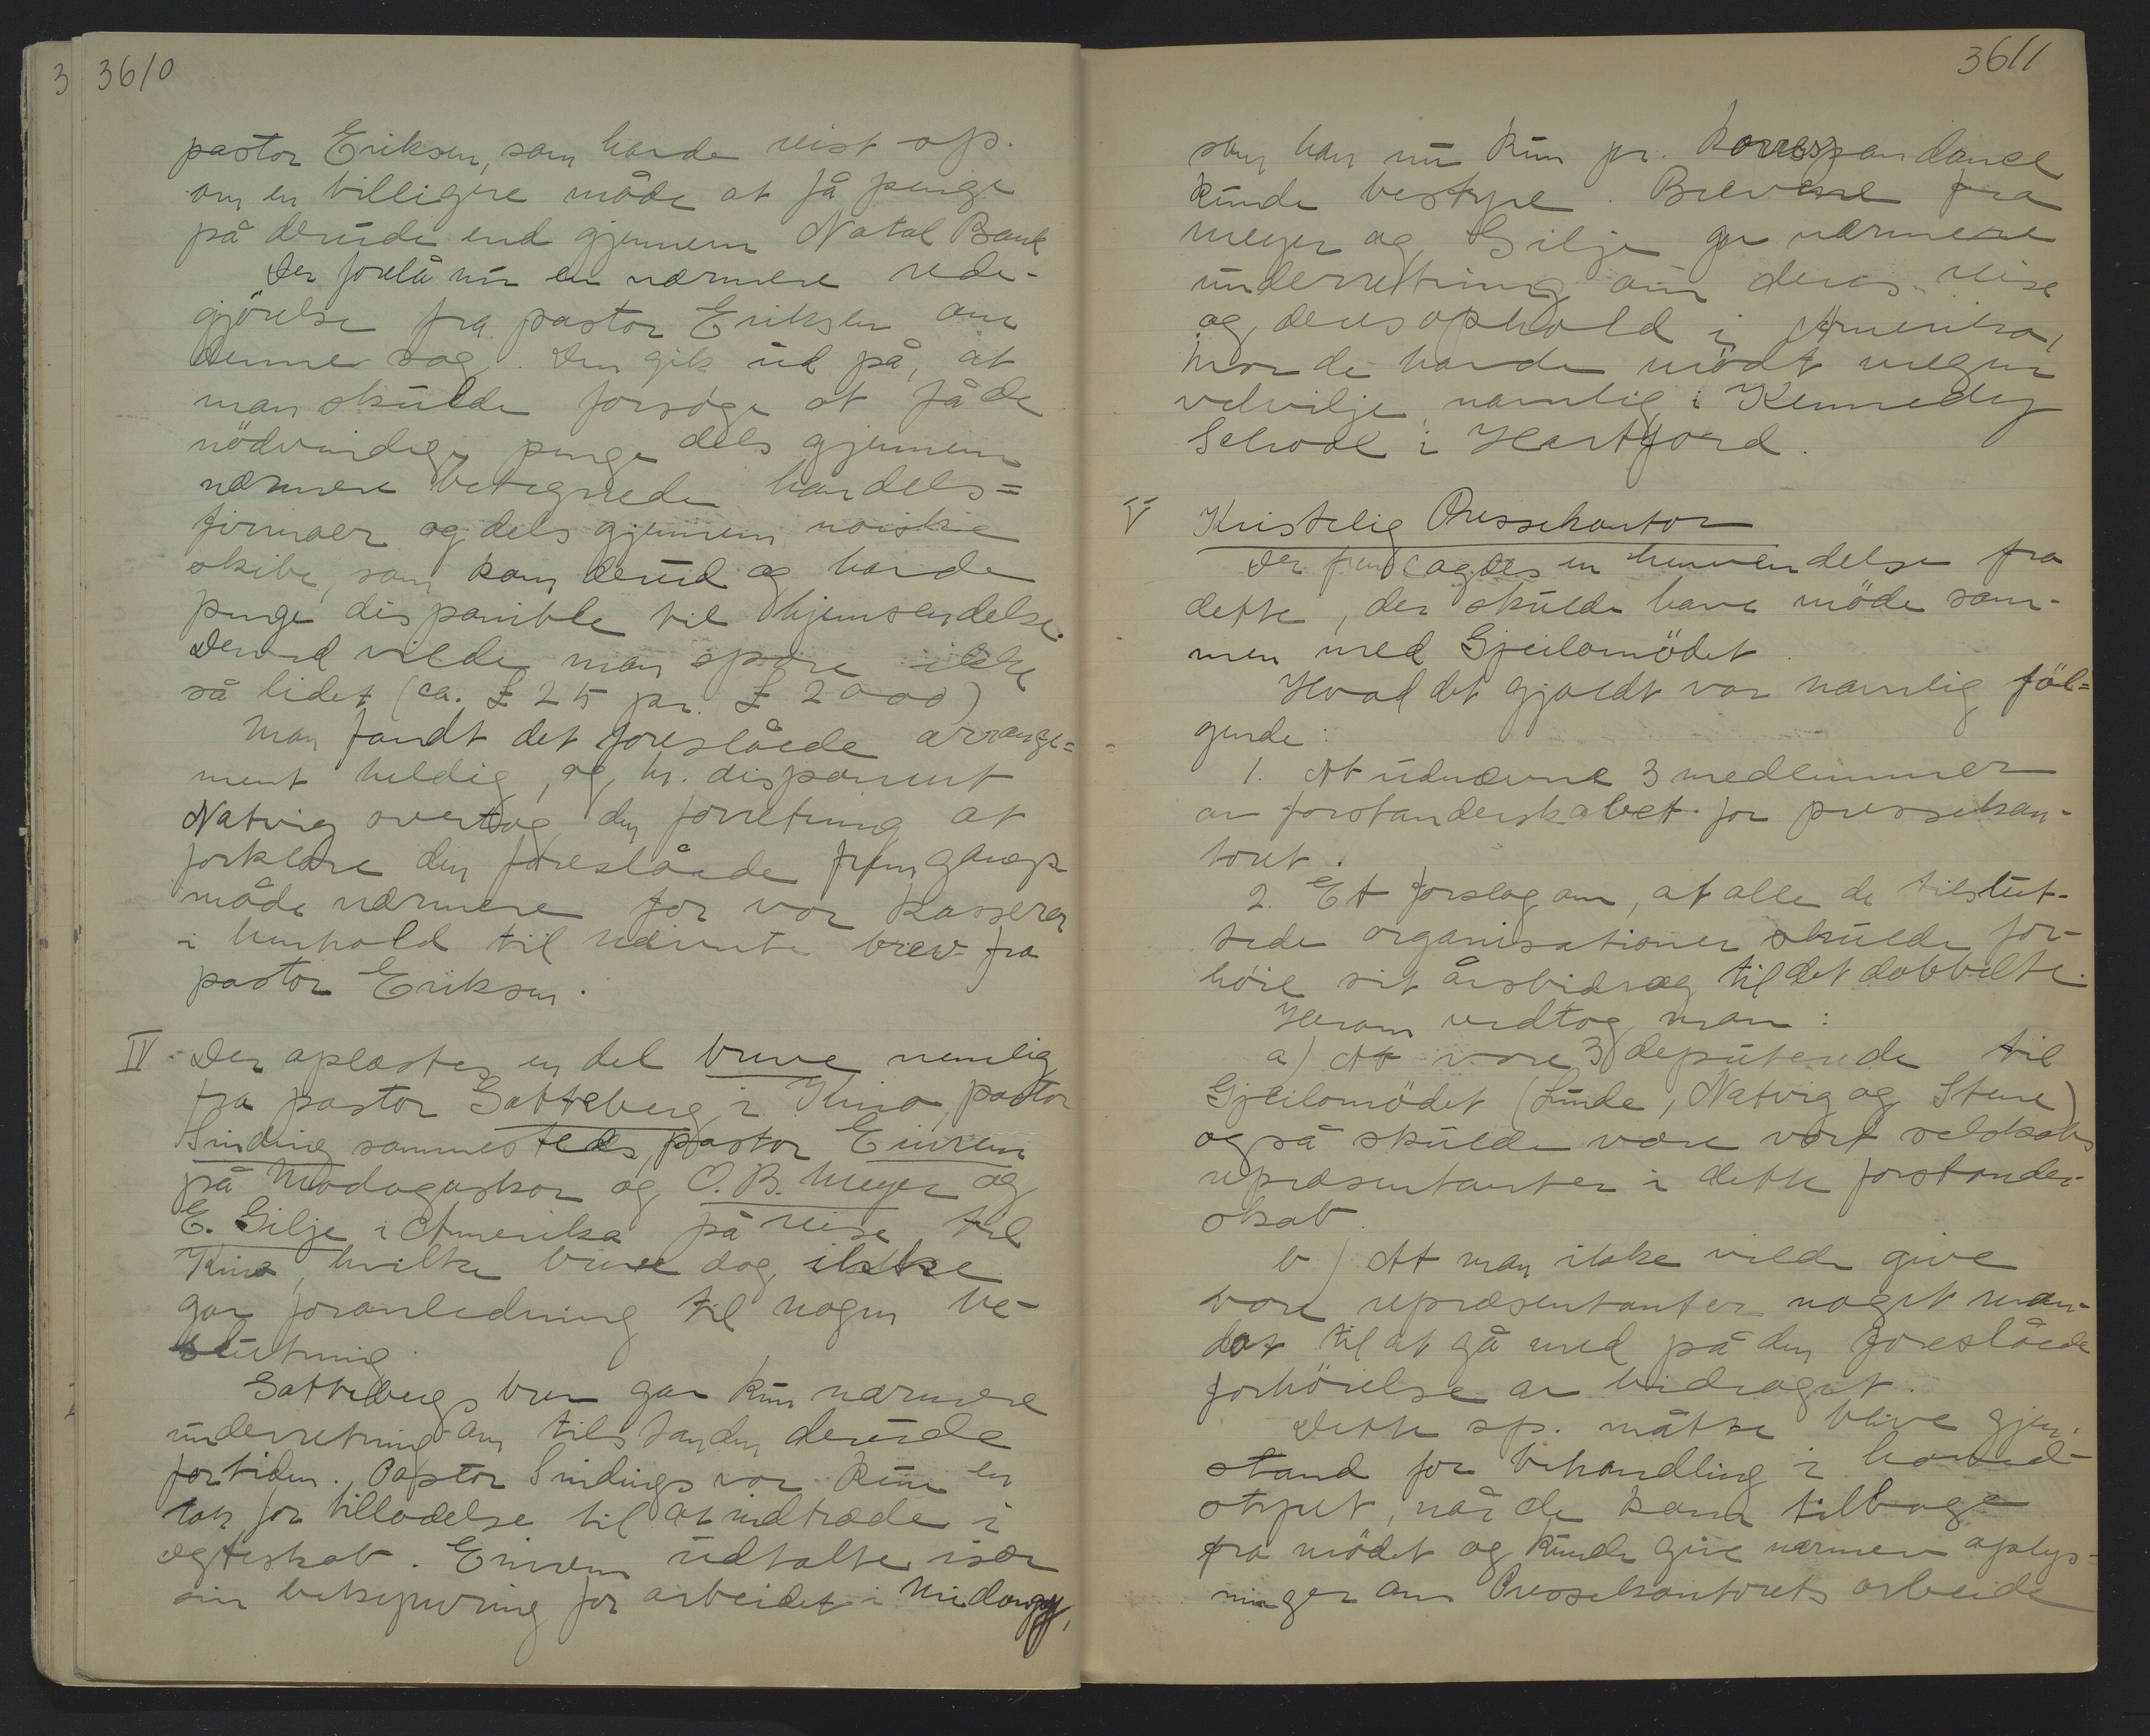 3 3610
pastor Eriksen, som havde vist op.
om en billigere måde at få penge
på derude end gjennem Natal Bank
Der forelå nu en nærmere rede-
gjörelse fra pastor Eriksen om
denne sag. Den gik ud på, at
man skulde forsöge at få de
nödvendige penge dels gjennem
nærmere betegnede handels=
firmaer og dels gjennem norske
skibe, som kom derud og havde
penge disponible til hjemsendelse.
Derved vilde man spare ikke
så lidet (ca. £ 25 pr. £ 2000)
Man fandt det foreslåede arrange=
ment heldig, og hr. disponent
Natvig overtog den forretning at
forklare den foreslåede fremgangs
måde nærmere for vor kasserer
i henhold til nævnte brev fra
pastor Eriksen.
IV Der oplæstes en del breve nemlig
fra pastor Sætteberg i Kina, pastor
Sinding sammesteds, pastor Einrem
på Madagaskar og O. B. Meyer og
E. Gilje i Amerika på reise til
Kina, hvilke breve dog ikke
gav foranledning til nogen be-
slutning.
Sættebergs brev gav kun nærmere
underretning om tilstanden derude
for tiden. Pastor Sindings var kun en
tak for tilladelse til at indtræde i
ægteskab. Einrem udtalte især
sin bekymring for arbeidet i Midongy,
3611
som han nu kun pr. korrespondance
kunde bestyre. Brevene fra
Meyer og Gilje gav nærmere
underretning om deres reise
og deres ophold i Amerika,
hvor de havde mödt megen
velvilje navnlig i Kennedy
School i Hartford.
V Kristelig Pressekontor
Der fremlagdes en henvendelse fra
dette, der skulde have möde sam-
men med Gjeilomödet.
Hvad det gjaldt var navnlig föl=
gende:
1. At udnævne 3 medlemmer
av forstanderskabet for pressekon-
toret.
2. Et forslag om, at alle de tilslut-
tede organisationer skulde for-
höie sit årsbidrag til det dobbelte.
Herom vedtog man:
a) At vore 3 deputerede til
Gjeilomödet (Lunde, Natvig og Stene)
også skulde være vort selskabs
repræsentanter i dette forstander-
skab.
b) At man ikke vilde give
vore repræsentanter noget man-
dat til at gå med på den foreslåede
forhöielse av bidraget.
Dette sp. måtte blive gjen-
stand for behandling i hoved-
styret, når de kom tilbage
fra mödet og kunde give nærmere oplys-
ninger om Pressekontorets arbeide